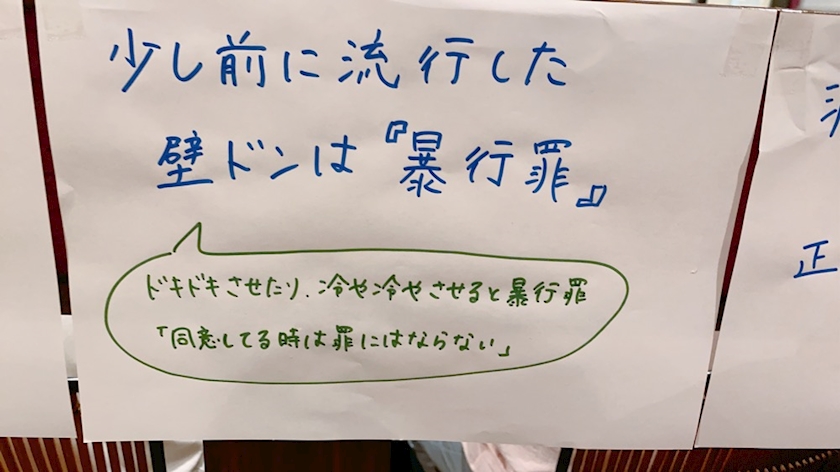 少し前に流行した
壁ドンは『暴行罪』
ドキドキさせたり、冷や冷やさせると暴行罪
「同意してる時は罪にはならない」
正